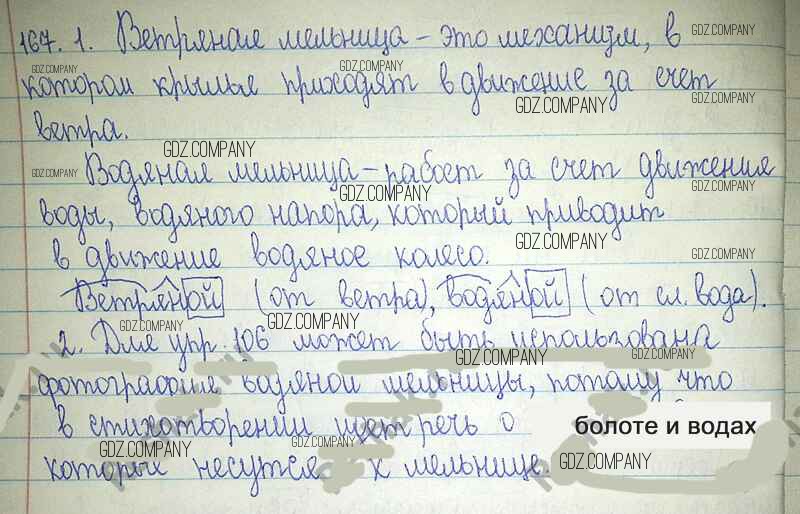 167. 1. Ветряная мельница – это механизм, в
котором крылья приходят в движение за счет
ветра.
Водяная мельница – рабоет за счет движения
воды, водяного напора, который приводит
в движение водяное колесо.
Ветряной (от ветра), водяной (от сл. вода).
2. Для упр. 106 может быть использована
фотография водяной мельницы, потому что
в стихотворении идет речь о болоте и водах
которых несутся к мельнице.
GDZ.COMPANY